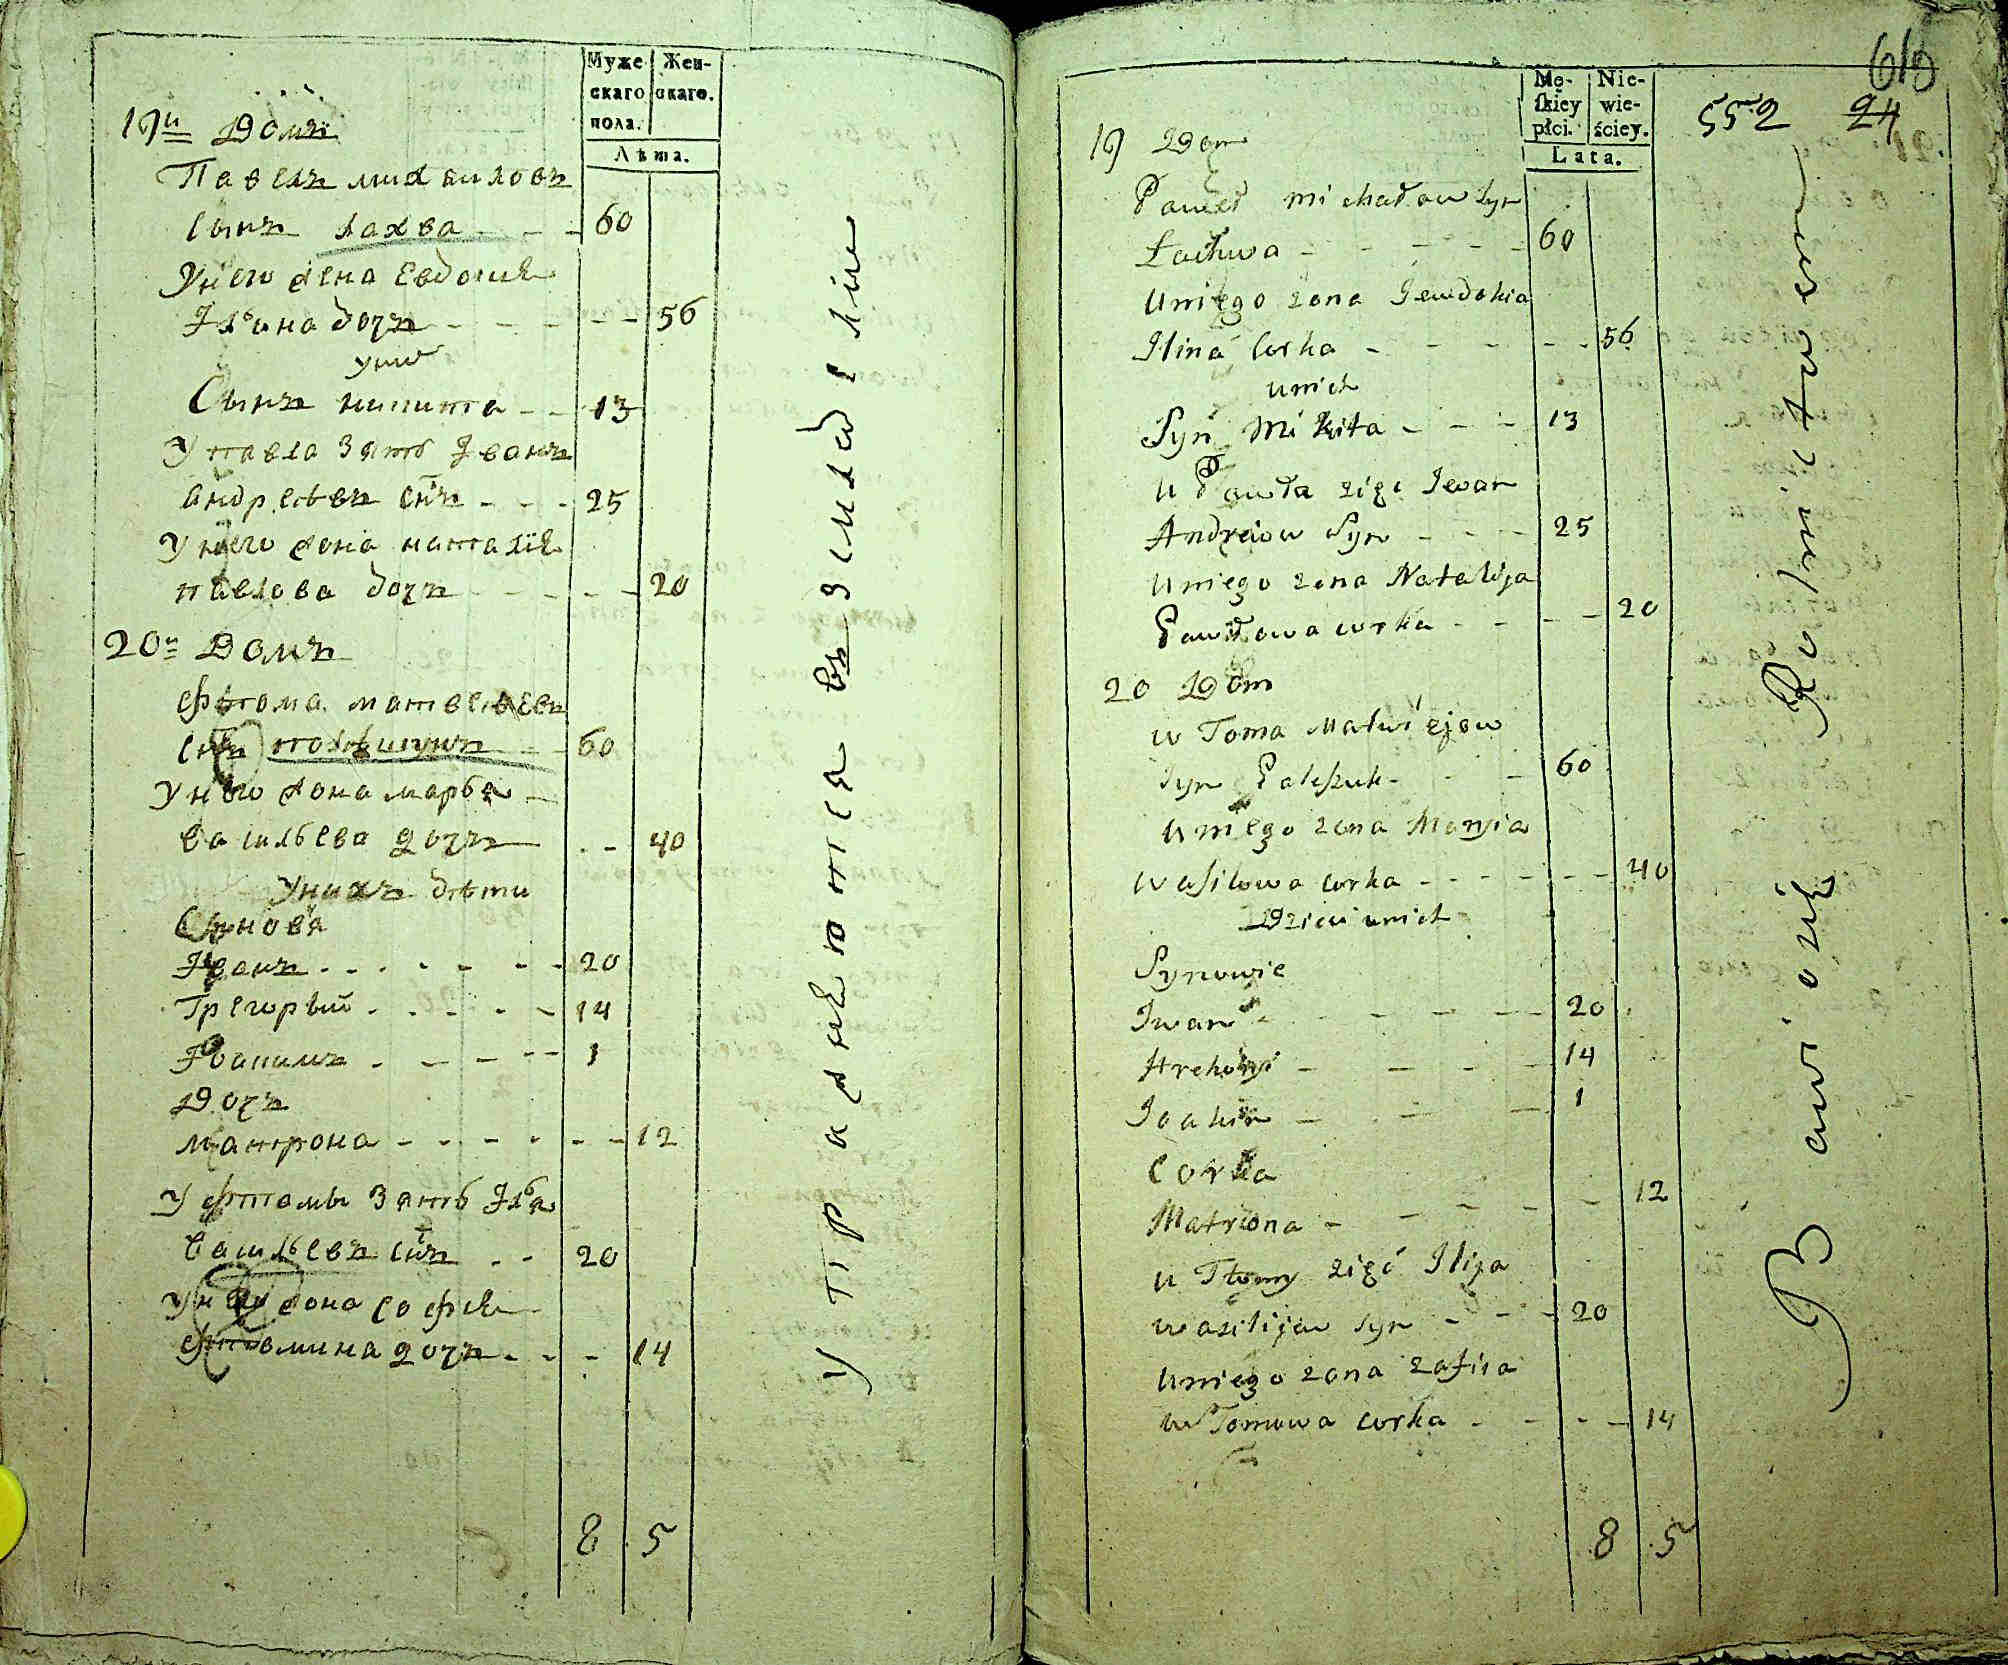 Муже Жен-
скаго скаго.
пола.
Лѣта.
19й Домъ
Павелъ михаиловъ
сынъ лахва - - - 60
Унего жена Евдокия
Ильина дочъ - - - - - - 56
у них
Сынъ никита - - 13
У павла зять Иванъ
андреѣвъ снъ - - - 25
У него жена наталїя
павлова дочъ - - - - - 20
20й Домъ
фтома матвеевъ
снъ - - 60
У него жена марья
васильева дочъ - - 40
У нихъ дѣти
Сыновя
Иванъ - - - - - - - 20
Грегорый - - - - - 14
Иоакимъ - - - - - 1
Дочъ
матрона - - - - - - - 12
У фтомы зять Илья
васильевъ снъ - - 20
У него жена софия
фтомина дочъ - - - 14
8 5
Упражняются въ земледелии
Mę- Nie-
ſkiey wie-
płci. ściey.
Lata.
552 24
19 Dom
Paweł Michałow Syn
Łachwa - - - - - - 60
Uniego zona Jewdokia
Ilina corka - - - - - 56
unich
Syn Mikita - - - 13
U Pawła zięc Iwan
Andreiow Syn - - - 25
Uniego zona Natalija
Pawłowa corka - - - - 20
20 Dom
w Toma Matwiejow
Syn Paleszuk - - - 60
Uniego zona Maryia
Wasilowa corka - - - - - - 40
Dzieci unich
Synowie
Iwan - - - - - - 20
Hrehoryi - - - - 14
Joakim - - - 1
Corka
Matrona - - - - - - 12
u Ftomy zięć Ilija
Wasilijow Syn - - - 20
Uniego zona Zofiia
w Tomowa corka - - - - 14
8 5
Bawi ozię Rolnictwem